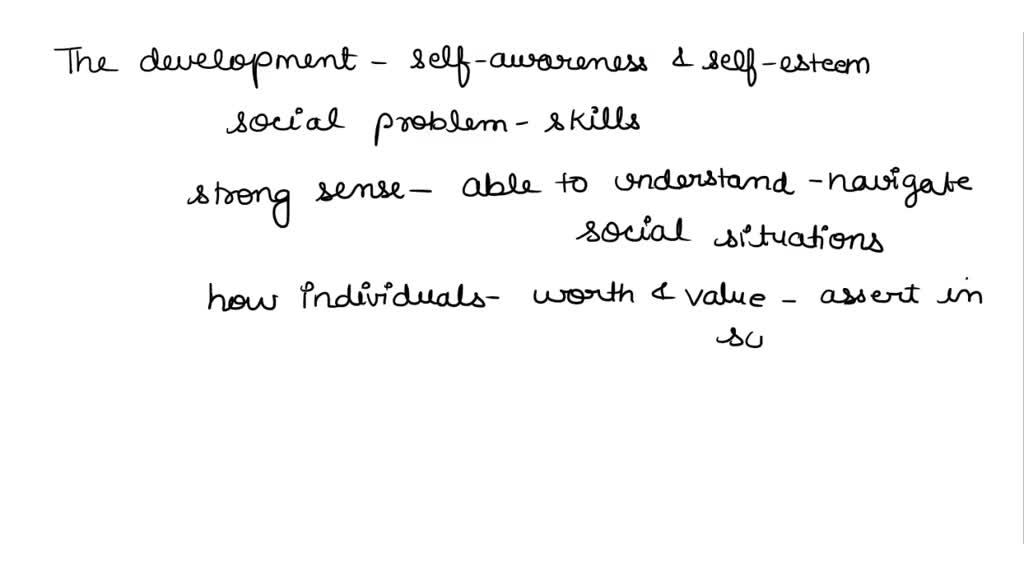 The development - self-awareness & self-esteem
social problem - skills
strong sense - able to understand - navigate
social situations
how individuals - worth & value - assert in